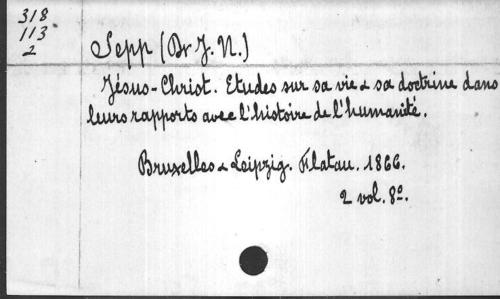 318
113
2
Sepp (Dr J. N.)
Jésus-Christ. Etudes sur sa vie & sa doctrine dans
leurs rapports avec l'histoire de l'humanité.
Bruxelles & Leipzig. Flatau. 1866.
2 vol. 8º.